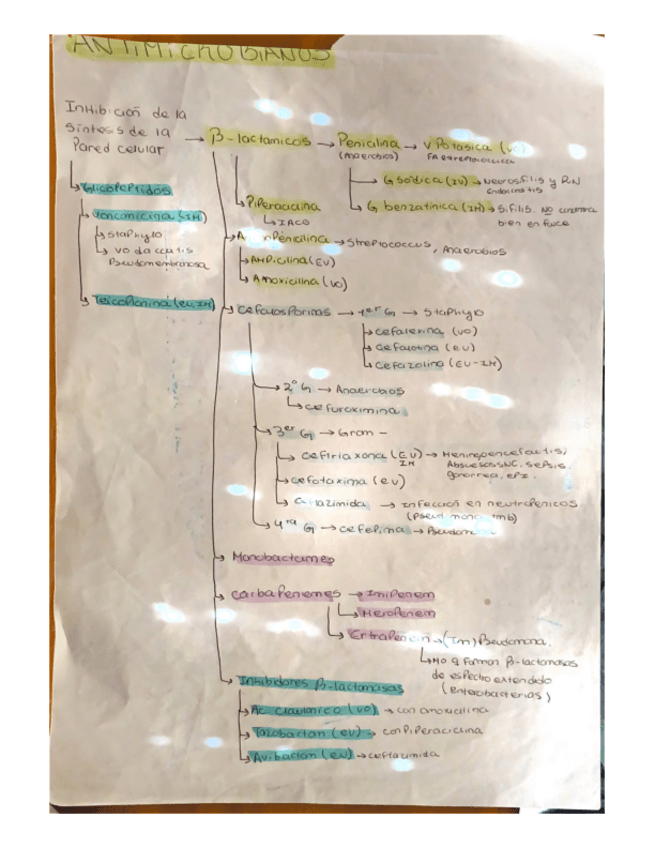 ANTIMICROBIANOS
Inhibición de la
síntesis de la
Pared celular
Glicopeptidos
Vancomicina (IM)
Staphylo
VO da colitis
Pseudomembranosa
Teicoplanina (EV, IM)
β-lactamicos → Penicilina → V Potasica (VO)
(Anaerobios)
G Sodica (IV) → Neurosifilis y RN
Endocarditis
G benzatinica (IM) → Sifilis. NO
bien en
Piperacicilina
IACO
Streptococcus, Anaerobios
AMPicilina (EV)
Amoxicilina (VO)
Cefalosporinas → 1er G → Staphylo
Cefalexina (VO)
Cefalotina (EV)
Cefazolina (EV-IM)
2º G → Anaerobios
Cefuroximina
3er G → Gram -
Ceftriaxona (EV
IM) → Meningoencefalitis,
Absceso SNC, sepsis,
gonorrea, EPI.
Cefotaxima (EV)
Infección en neutropenicos
4ta G → Cefepima →
Monobactames
Carbapenemes → Imipenem
Meropenem
Ertapenem → (IM) Pseudomona.
Mo q forman β-lactamasas
de espectro extendido
(Enterobacterias)
Inhibidores β-lactamasas
Ac clavulonico (VO) → con amoxicilina
Tazobactan (EV) → con Piperacicilina
Avibactan (EV) → ceftazimida